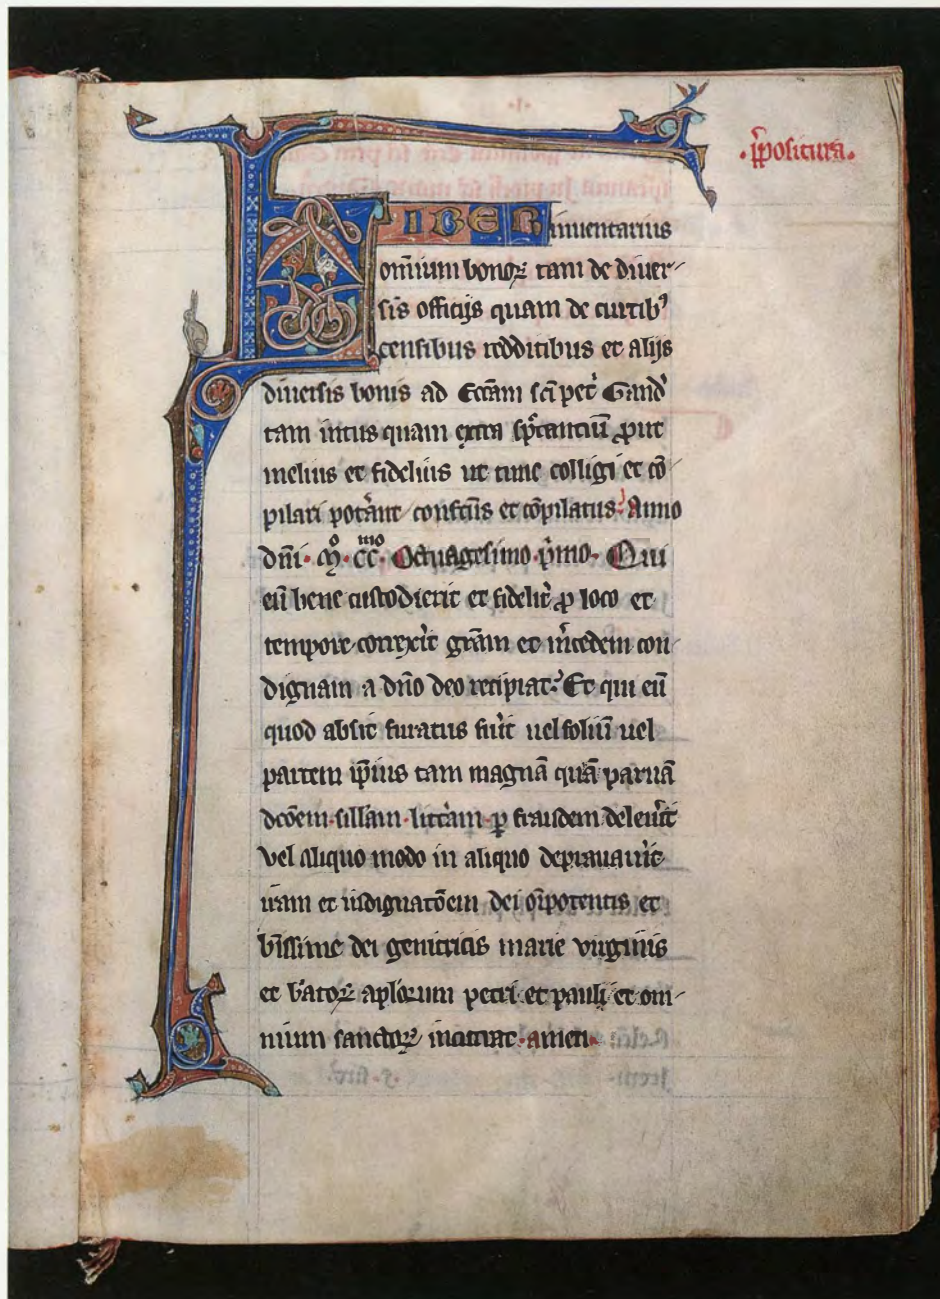 ·p̄positura·
LIBER inuentarius
om̄ium bonoꝝ tam de diuer-
sis officijs quam de curtibꝰ
censibus redditibus et alijs
diuersis bonis ad Ecc̄am sc̄i pet᷑ Gand᷑
tam intus quam extra sp̄tantiū ꝓut
melius et fidelius ut tunc colligi et cō-
pilari pot᷑ant confectus et cōpilatus. Anno
dn̄i· Mº· CCmo· Octuagesimo p̄mo· Qui
eū bene custodierit et fidelit᷑ ꝓ loco et
tempore correx᷑it gr̄am et m᷑cedem con-
dignam a dn̄o deo recipiat. Et qui eū
quod absit furatus fu᷑it uel foliū uel
partem ip̄ius tam magnā quā paruā
dcōem·sill̄am·litt᷑am·ꝑ fraudem deleu᷑it
vel aliquo modo in aliquo deprauau᷑it
iram et indignatōem dei om̄ipotentis et
bt̄issime dei genitricis marie virginis
et b᷑atoꝝ apl̄orum petri et pauli et om-
nium sanctoꝝ incurrat·amen·